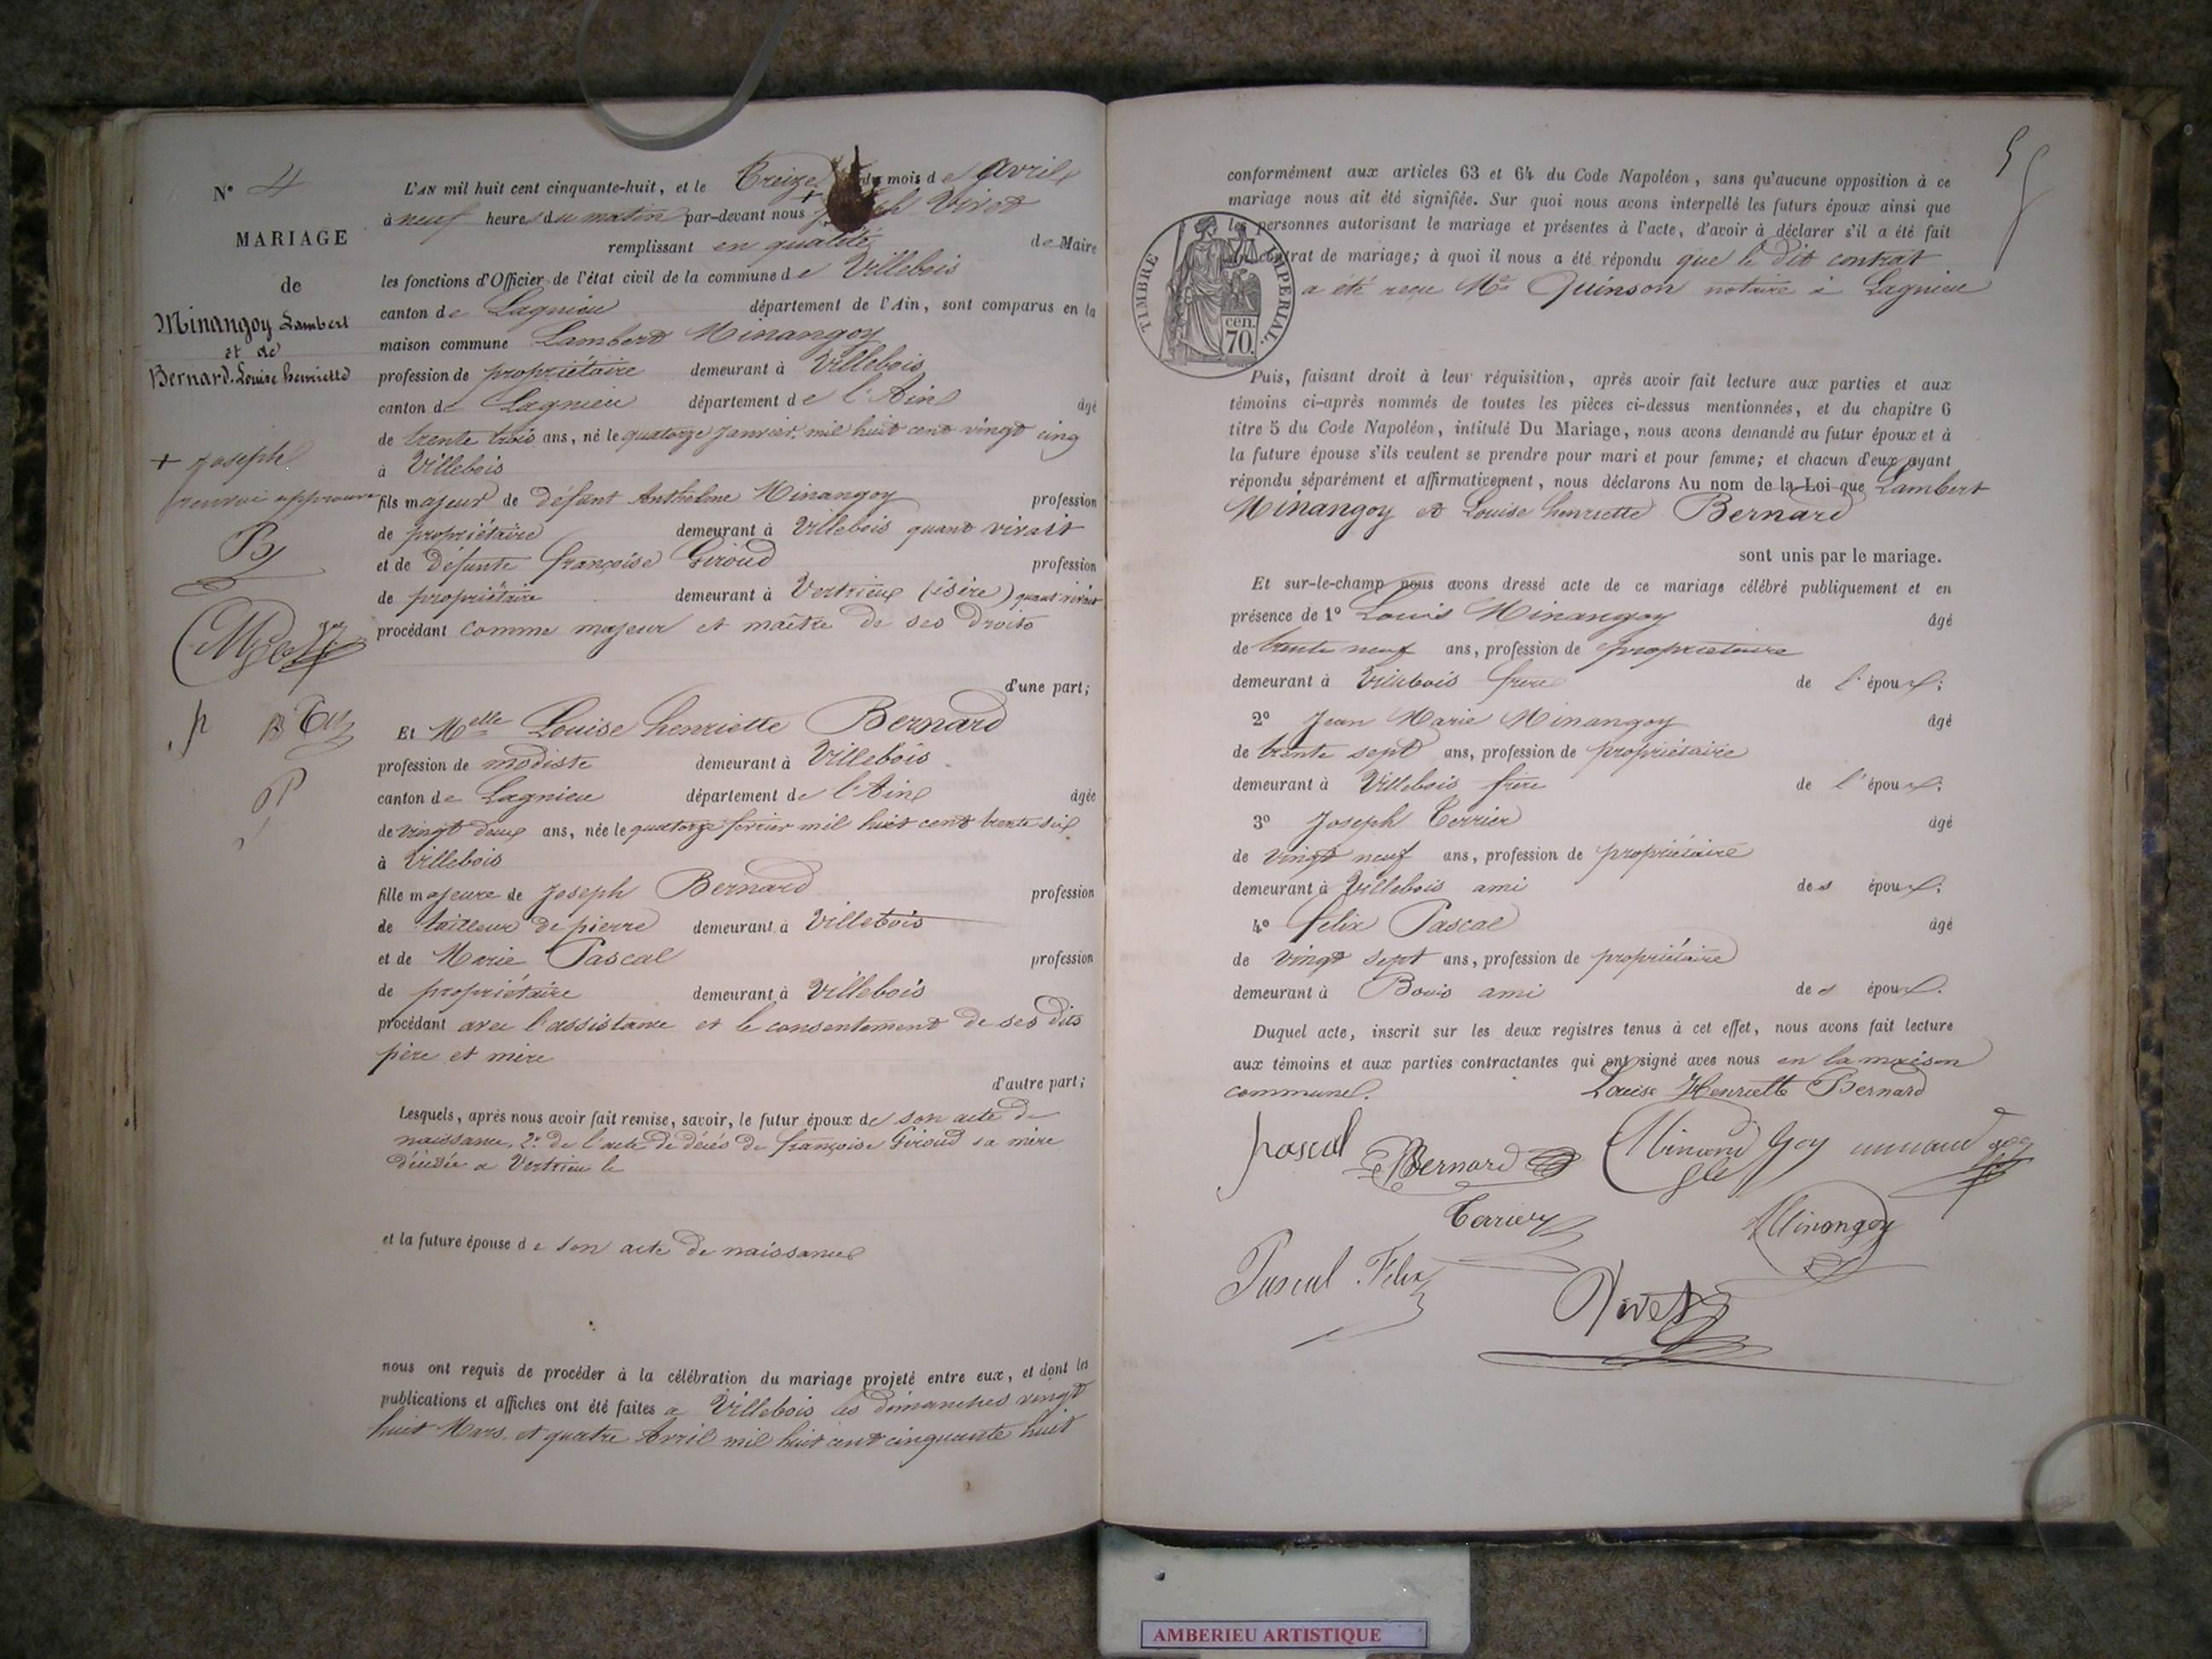 N° 4
MARIAGE
de
Minangoy Lambert
et de
Bernard. Louise henriette
+ Joseph
renvoi approuvé
B
L'AN mil huit cent cinquante-huit, et le Treize du mois de Avril
à neuf heures du matin par-devant nous + Joseph Vivet
remplissant en qualité de Maire
les fonctions d'Officier de l'état civil de la commune de Villebois
canton de Lagnieu département de l'Ain, sont comparus en la
maison commune Lambert Minangoy
profession de propriétaire demeurant à Villebois
canton de Lagnieu département de l'Ain âgé
de trente trois ans, né le quatorze Janvier, mil huit cent vingt cinq
à Villebois
fils majeur de défunt Anthelme Minangoy profession
de propriétaire demeurant à Villebois quant vivait
et de défunte françoise Giroud profession
de propriétaire demeurant à Vertrieux (isère) quant vivait
procédant comme majeur et maître de ses droits
d'une part;
Et Melle Louise henriette Bernard
profession de modiste demeurant à Villebois
canton de Lagnieu département de l'Ain âgée
de vingt deux ans, née le quatorze fevrier mil huit cent trente six
à Villebois
fille majeure de Joseph Bernard profession
de tailleur de pierre demeurant à Villebois
et de Marie Pascal profession
de propriétaire demeurant à Villebois
procédant avec l'assistance et le consentement de ses dits
père et mère
d'autre part;
Lesquels, après nous avoir fait remise, savoir, le futur époux de son acte de
naissance, 2° de l'acte de décés de françoise Giroud sa mère
décédée a Vertrieu le
et la future épouse de son acte de naissance
nous ont requis de procéder à la célébration du mariage projeté entre eux, et dont les
publications et affiches ont été faites a Villebois les dimanches vingt
huit Mars, et quatre Avril mil huit cent cinquante huit
conformément aux articles 63 et 64 du Code Napoléon, sans qu'aucune opposition à ce
mariage nous ait été signifiée. Sur quoi nous avons interpellé les futurs époux ainsi que
les personnes autorisant le mariage et présentes à l'acte, d'avoir à déclarer s'il a été fait
un contrat de mariage; à quoi il nous a été répondu que le dit contrat
a été reçu Me Quinson notaire à Lagnieu
TIMBRE IMPERIAL.
cen.
70.
Puis, faisant droit à leur réquisition, après avoir fait lecture aux parties et aux
témoins ci-après nommés de toutes les pièces ci-dessus mentionnées, et du chapitre 6
titre 5 du Code Napoléon, intitulé Du Mariage, nous avons demandé au futur époux et à
la future épouse s'ils veulent se prendre pour mari et pour femme; et chacun d'eux ayant
répondu séparément et affirmativement, nous déclarons Au nom de la Loi que Lambert
Minangoy et Louise henriette Bernard
sont unis par le mariage.
Et sur-le-champ nous avons dressé acte de ce mariage célébré publiquement et en
présence de 1° Louis Minangoy âgé
de trente neuf ans, profession de propriétaire
demeurant à Villebois frère de l'époux;
2° Jean Marie Minangoy âgé
de trente sept ans, profession de propriétaire
demeurant à Villebois frère de l'époux;
3° Joseph Terrier âgé
de vingt neuf ans, profession de propriétaire
demeurant à Villebois ami des époux;
4° felix Pascal âgé
de vingt sept ans, profession de propriétaire
demeurant à Bouis ami des époux.
Duquel acte, inscrit sur les deux registres tenus à cet effet, nous avons fait lecture
aux témoins et aux parties contractantes qui ont signé avec nous en la maison
commune.
Louise Henriette Bernard
pascal Bernard
Terrier Minangoy
Pascal Felix
Vivet
AMBERIEU ARTISTIQUE